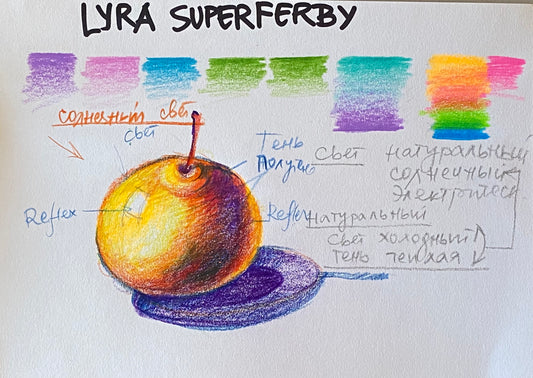 LYRA SUPERFERBY
солнечный свет
свет
Тень
Полутень
Reflex
Reflex
свет натуральный
солнечный
Электрическ
натуральный
свет холодный
тень теплая